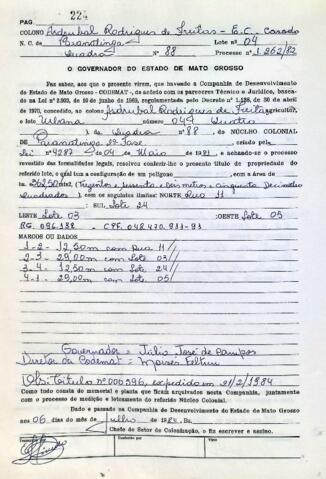 PAG. 224
COLONO Asdrubal Rodrigues de Freitas - E.C. Casado
N. C. de Paranatinga Lote nº 04
Quadra nº 88 Processo nº 1.962/83
O GOVERNADOR DO ESTADO DE MATO GROSSO
Faz saber, aos que o presente virem, que havendo a Companhia de Desenvolvimento
do Estado de Mato Grosso - CODEMAT -, de acordo com os pareceres Técnico e Jurídico, basea-
da na Lei nº 2.903, de 19 de junho de 1969, regulamentada pelo Decreto n.º 1.138, de 30 de abril
de 1970, concedido, ao colono Asdrubal Rodrigues de Freitas agricultor,
o lote Urbano nº 04 Quatro
Quadra nº 88, DO NÚCLEO COLONIAL
DE Paranatinga 2ª Fase, criado pela
Lei nº 4287 de 04 de Maio de 1981, e achando-se o processo
investido das formalidades legais, resolveu conferir-lhe o presente título de propriedade do
referido lote, o qual tem a configuração de um polígono, com a área de
362,50 m2, (Trezentos e sessenta e dois metros e cinquenta Decimetros
Quadrados), com os seguintes limites: NORTE Rua 11
SUL Lote 24
LESTE Lote 03 :OESTE Lote 05
RG. 096.138 - CPF. 048.470.911-91
MARCOS OU DADOS
1-2- 12,50m com Rua 11//
2-3- 29,00m com Lote 03//
3-4- 12,50m com Lote 24//
4-1- 29,00m com Lote 05//
Governador = Júlio José de Campos
Diretor da Codemat = Moisés Feltrin
Obs: Titulo nº 000596, expedido em 21/2/1984
Como tudo consta do memorial e planta que ficam arquivados nesta Companhia, juntamente
com o processo de medição e loteamento do referido Núcleo Colonial.
Dado e passado na Companhia de Desenvolvimento do Estado de Mato Grosso
aos 06 dias do mês de Julho de 1984. Eu,
Chefe do Setor de Colonização, o fiz escrever e assino.
Conferido por
Visto